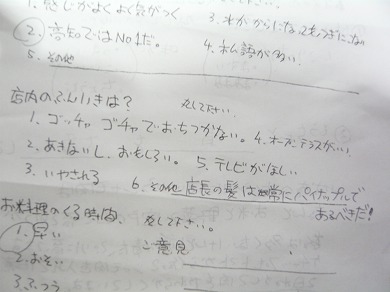 1. 感じがよくよく気がつく 3. 水がからになってもつぎにこない
2. 高知ではNo1だ。 4. 私語が多い
5. その他
店内のふんいきは? 丸して下さい
1. ゴッチャゴチャでおちつかない。 4. オープンテラスがいい
2. あきないし、おもしろい。 5. テレビがほしい
3. いやされる 6. その他 店長の髪は常にパイナップルで
あるべきだ!
お料理のくる時間 丸して下さい。
1. 早い ご意見
2. おそい
3. ふつう